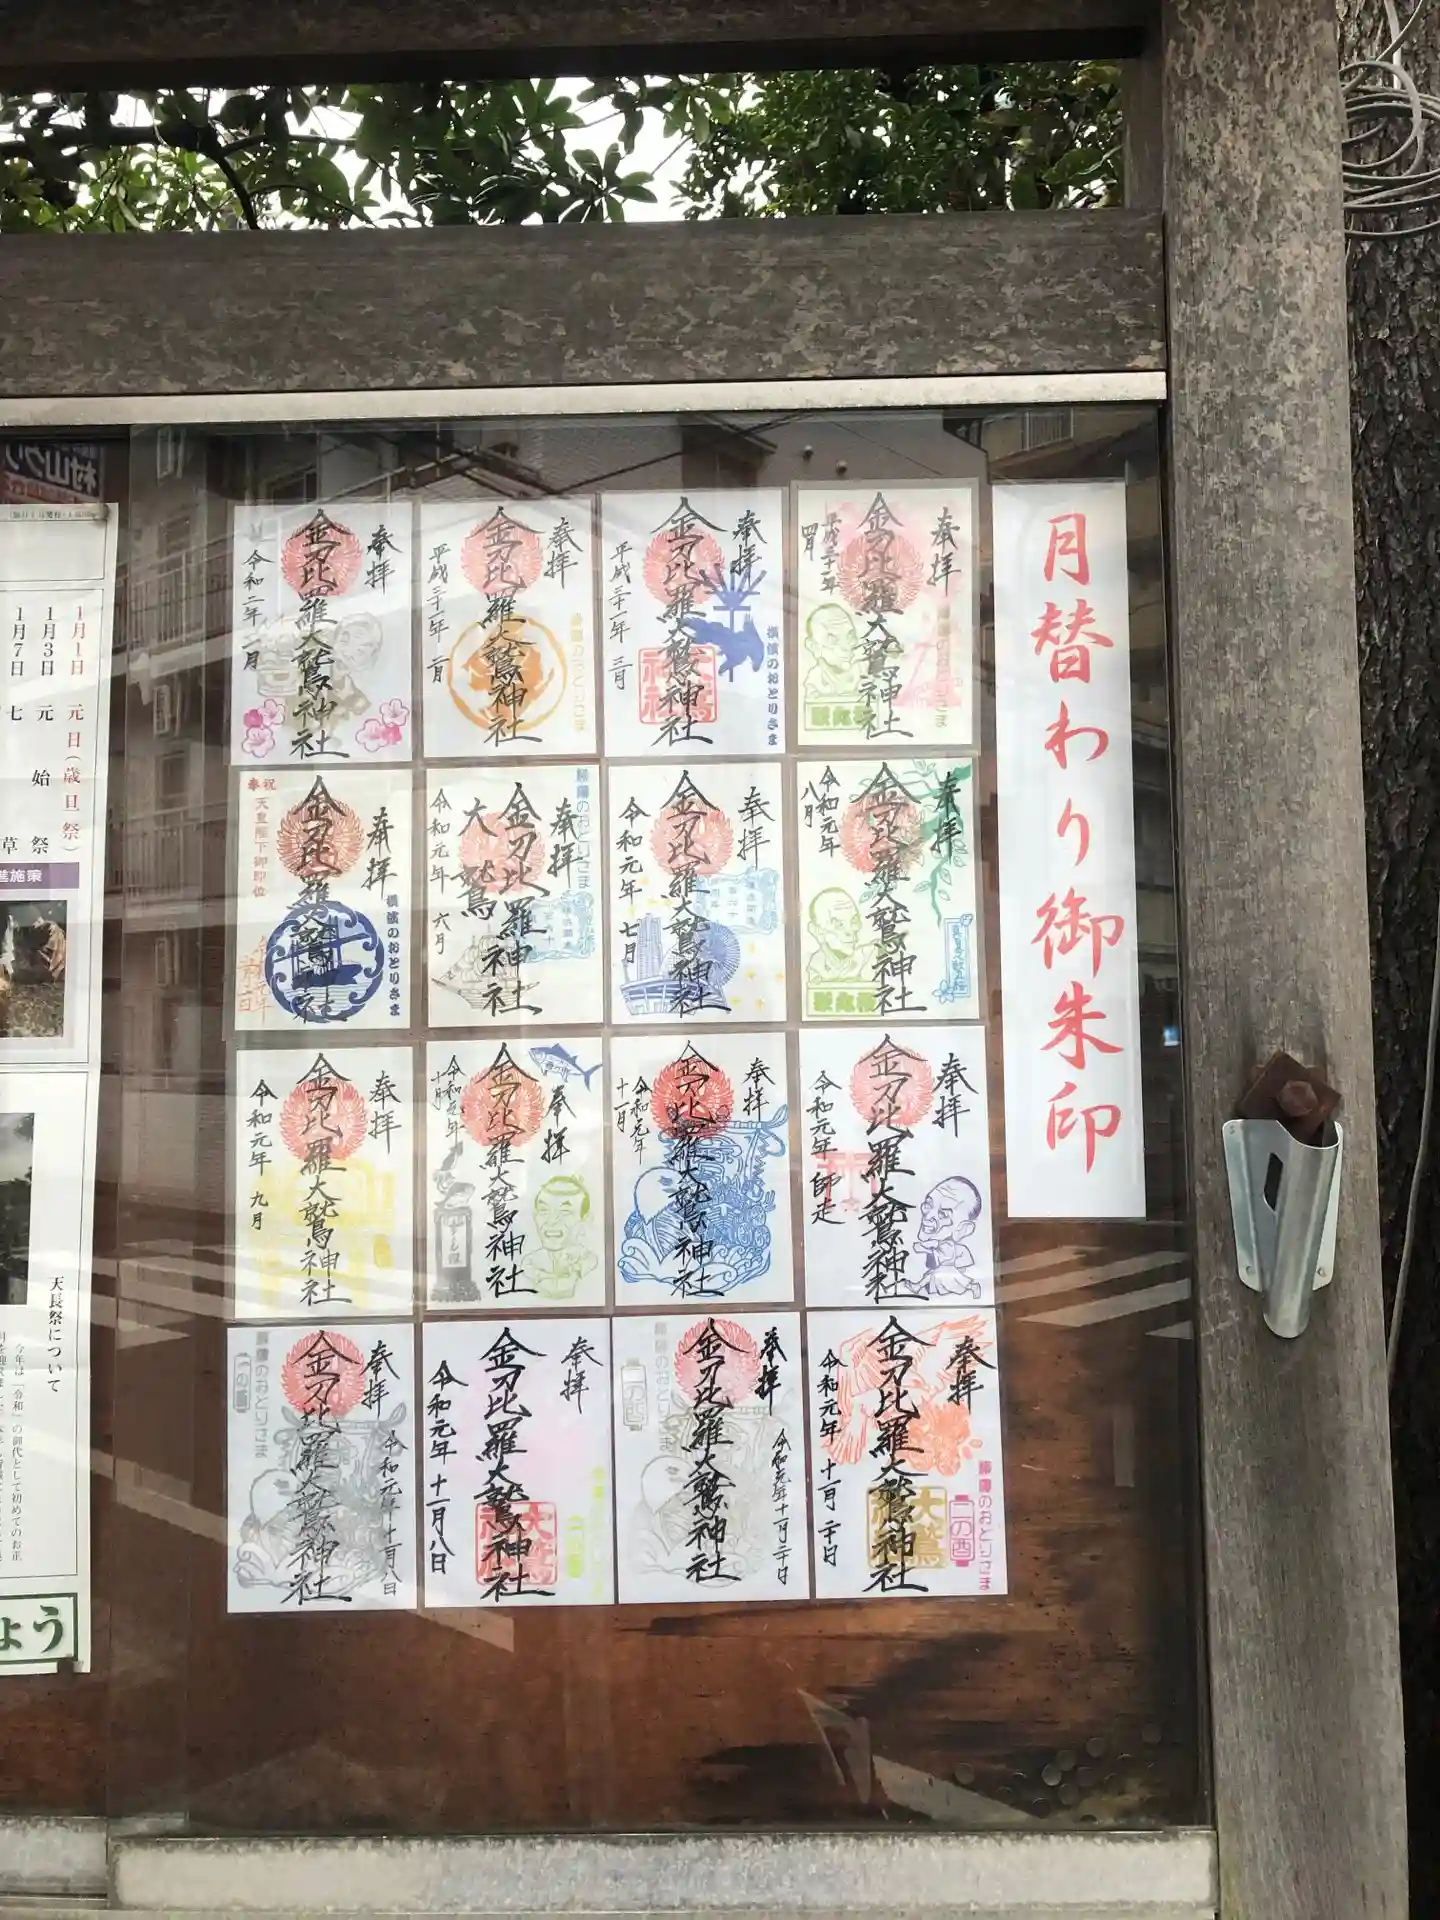 月替わり御朱印
奉拝
金刀比羅大鷲神社
令和二年一月
奉拝
金刀比羅大鷲神社
平成三十一年 二月
奉拝
金刀比羅大鷲神社
平成三十一年 三月
横濱のおとりさま
奉拝
金刀比羅大鷲神社
平成三十一年
四月
歌丸桜
奉祝
天皇陛下御即位
奉拝
金刀比羅大鷲神社
横濱のおとりさま
奉拝
金刀比羅神社
大鷲
令和元年 六月
横濱のおとりさま
奉拝
金刀比羅大鷲神社
令和元年 七月
奉拝
金刀比羅大鷲神社
令和元年
八月
歌丸桜
奉拝
金刀比羅大鷲神社
令和元年 九月
奉拝
金刀比羅大鷲神社
令和元年
十月
奉拝
金刀比羅大鷲神社
令和元年
十一月
奉拝
金刀比羅大鷲神社
令和元年 師走
横濱のおとりさま
一の酉
奉拝
金刀比羅大鷲神社
令和元年十一月八日
奉拝
金刀比羅大鷲神社
令和元年 十一月八日
横濱のおとりさま
二の酉
奉拝
金刀比羅大鷲神社
令和元年十一月二十日
奉拝
金刀比羅大鷲神社
令和元年 十一月 二十日
横濱のおとりさま
二の酉
1月1日 元日(歳旦祭)
1月3日 元始祭
1月7日 七草
進施策
天長祭について
今年は「令和」の御代として初めてのお正
ょう